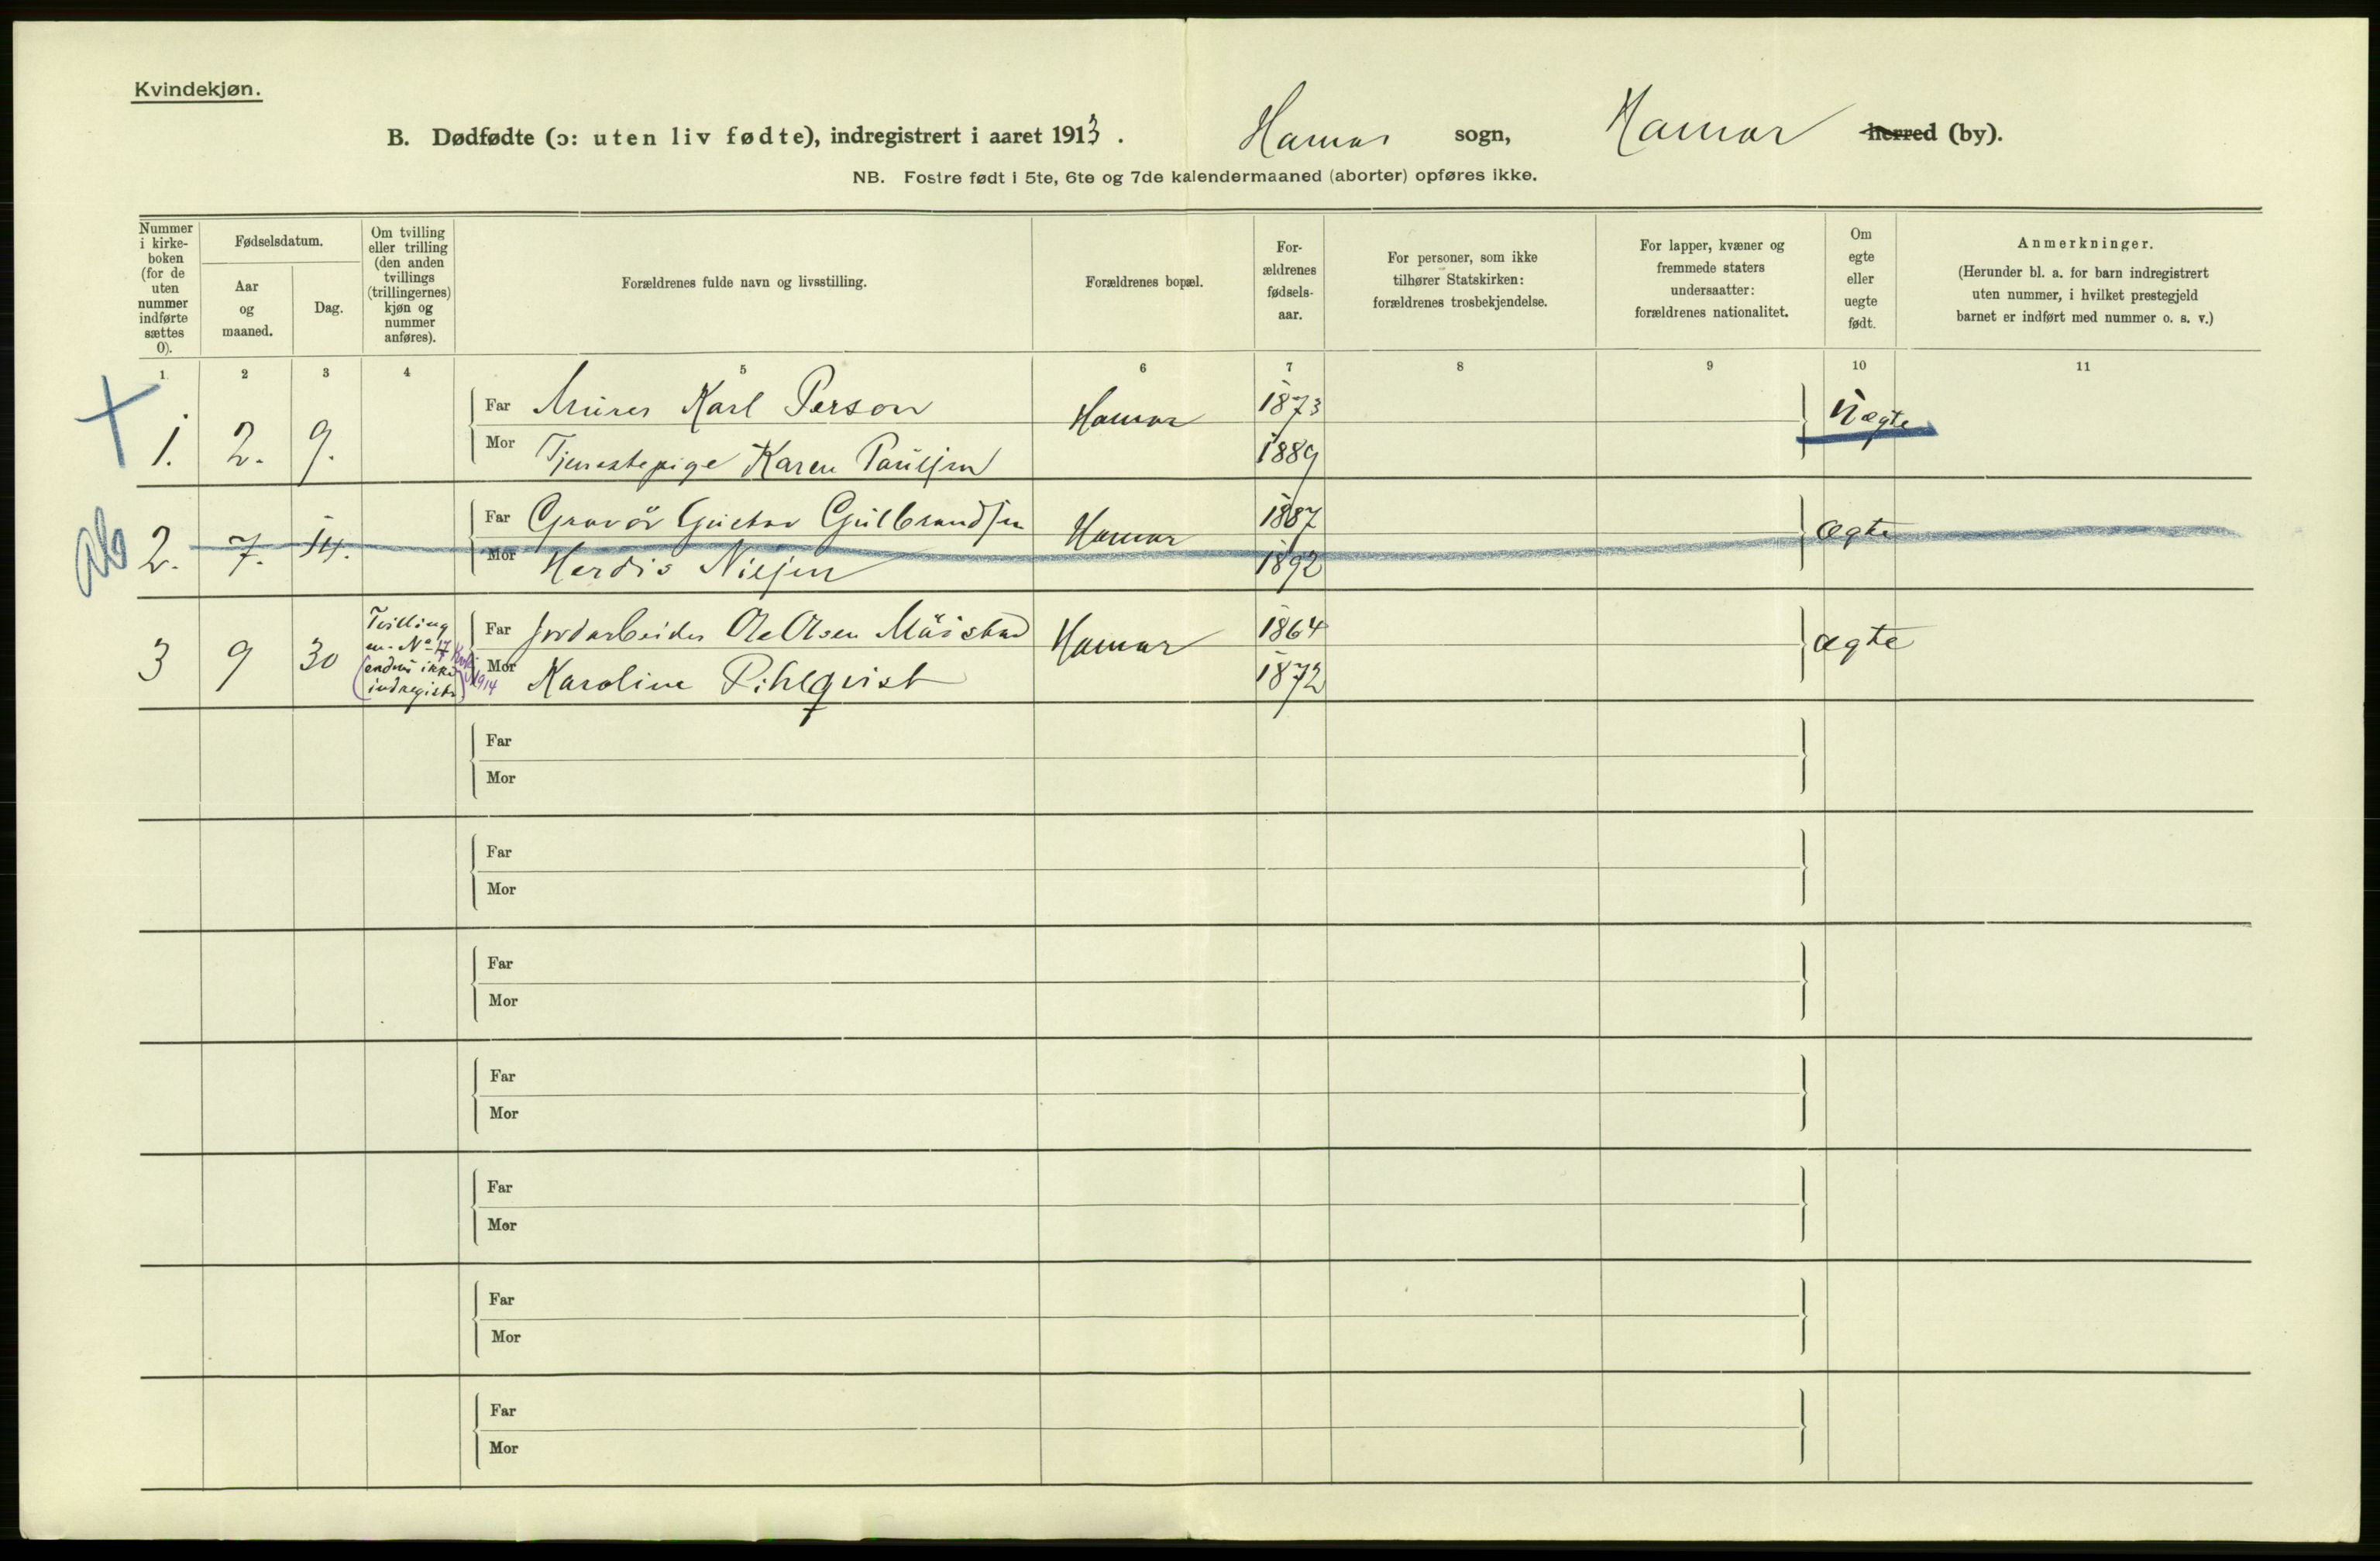 Kvindekjøn.
B. Dødfødte (ɔ: uten liv fødte), indregistrert i aaret 1913. Hamar sogn, Hamar herred (by).
NB. Fostre født i 5te, 6te og 7de kalendermaaned (aborter) opføres ikke.
Nummer
i kirke-
boken
(for de
uten
nummer
indførte
sættes
0).
Fødselsdatum.
Aar
og
maaned.
Dag.
Om tvilling
eller trilling
(den anden
tvillings
(trillingernes)
kjøn og
nummer
anføres).
Forældrenes fulde navn og livsstilling.
Forældrenes bopæl.
For-
ældrenes
fødsels-
aar.
For personer, som ikke
tilhører Statskirken:
forældrenes trosbekjendelse.
For lapper, kvæner og
fremmede staters
undersaatter:
forældrenes nationalitet.
Om
egte
eller
uegte
født.
Anmerkninger.
(Herunder bl. a. for barn indregistrert
uten nummer, i hvilket prestegjeld
barnet er indført med nummer o. s. v.)
1 2 3 4 5 6 7 8 9 10 11
1. 2. 9. Far Murer Karl Person Hamar 1873 Uægte
Mor Tjenestepige Karen Paulsen 1889
ab 2. 7. 14. Far Gravør Gustav Gulbrandsen Hamar 1887 ægte
Mor Herdis Nilsen 1892
3 9 30 Far Jordarbeider Ole Olsen Mæistad Hamar 1864 ægte
Mor Karoline Pihlqvist 1872
Tvilling
m. No 17
(endnu ikke
indregistr.) 1914
Far
Mor
Far
Mor
Far
Mor
Far
Mor
Far
Mor
Far
Mor
Far
Mor